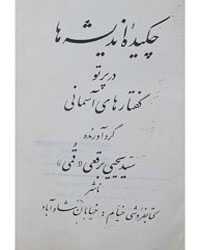 چکیدهٔ اندیشه ها
در پرتو
گفتارهای آسمانی
گردآورنده
سید یحیی برقعی «قمی»
ناشر
کتابفروشی خیام : خیابان شاه آباد